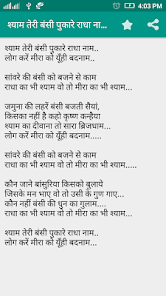 4:03 PM
श्याम तेरी बंसी पुकारे राधा ना...
श्याम तेरी बंसी पुकारे राधा नाम..
लोग करें मीरा को यूँही बदनाम..
सांवरे की बंसी को बजने से काम
राधा का भी श्याम वो तो मीरा का भी श्याम...
जमुना की लहरें बंसी बजती सैयां,
किसका नहीं है कहो कृष्ण कन्हैया
श्याम का दीवाना तो सारा ब्रिजधाम...
लोग करें मीरा को यूँही बदनाम.....
सांवरे की बंसी को बजने से काम
राधा का भी श्याम वो तो मीरा का भी श्याम.....
कौन जाने बांसुरिया किसको बुलाये
जिसके मन भाए वो तो उसी के गुण गाए...
कौन नहीं बंसी की धुन का गुलाम....
राधा का भी श्याम वो तो मीरा का भी श्याम...
श्याम तेरी बंसी पुकारे राधा नाम..
लोग करें मीरा को यूँही बदनाम...